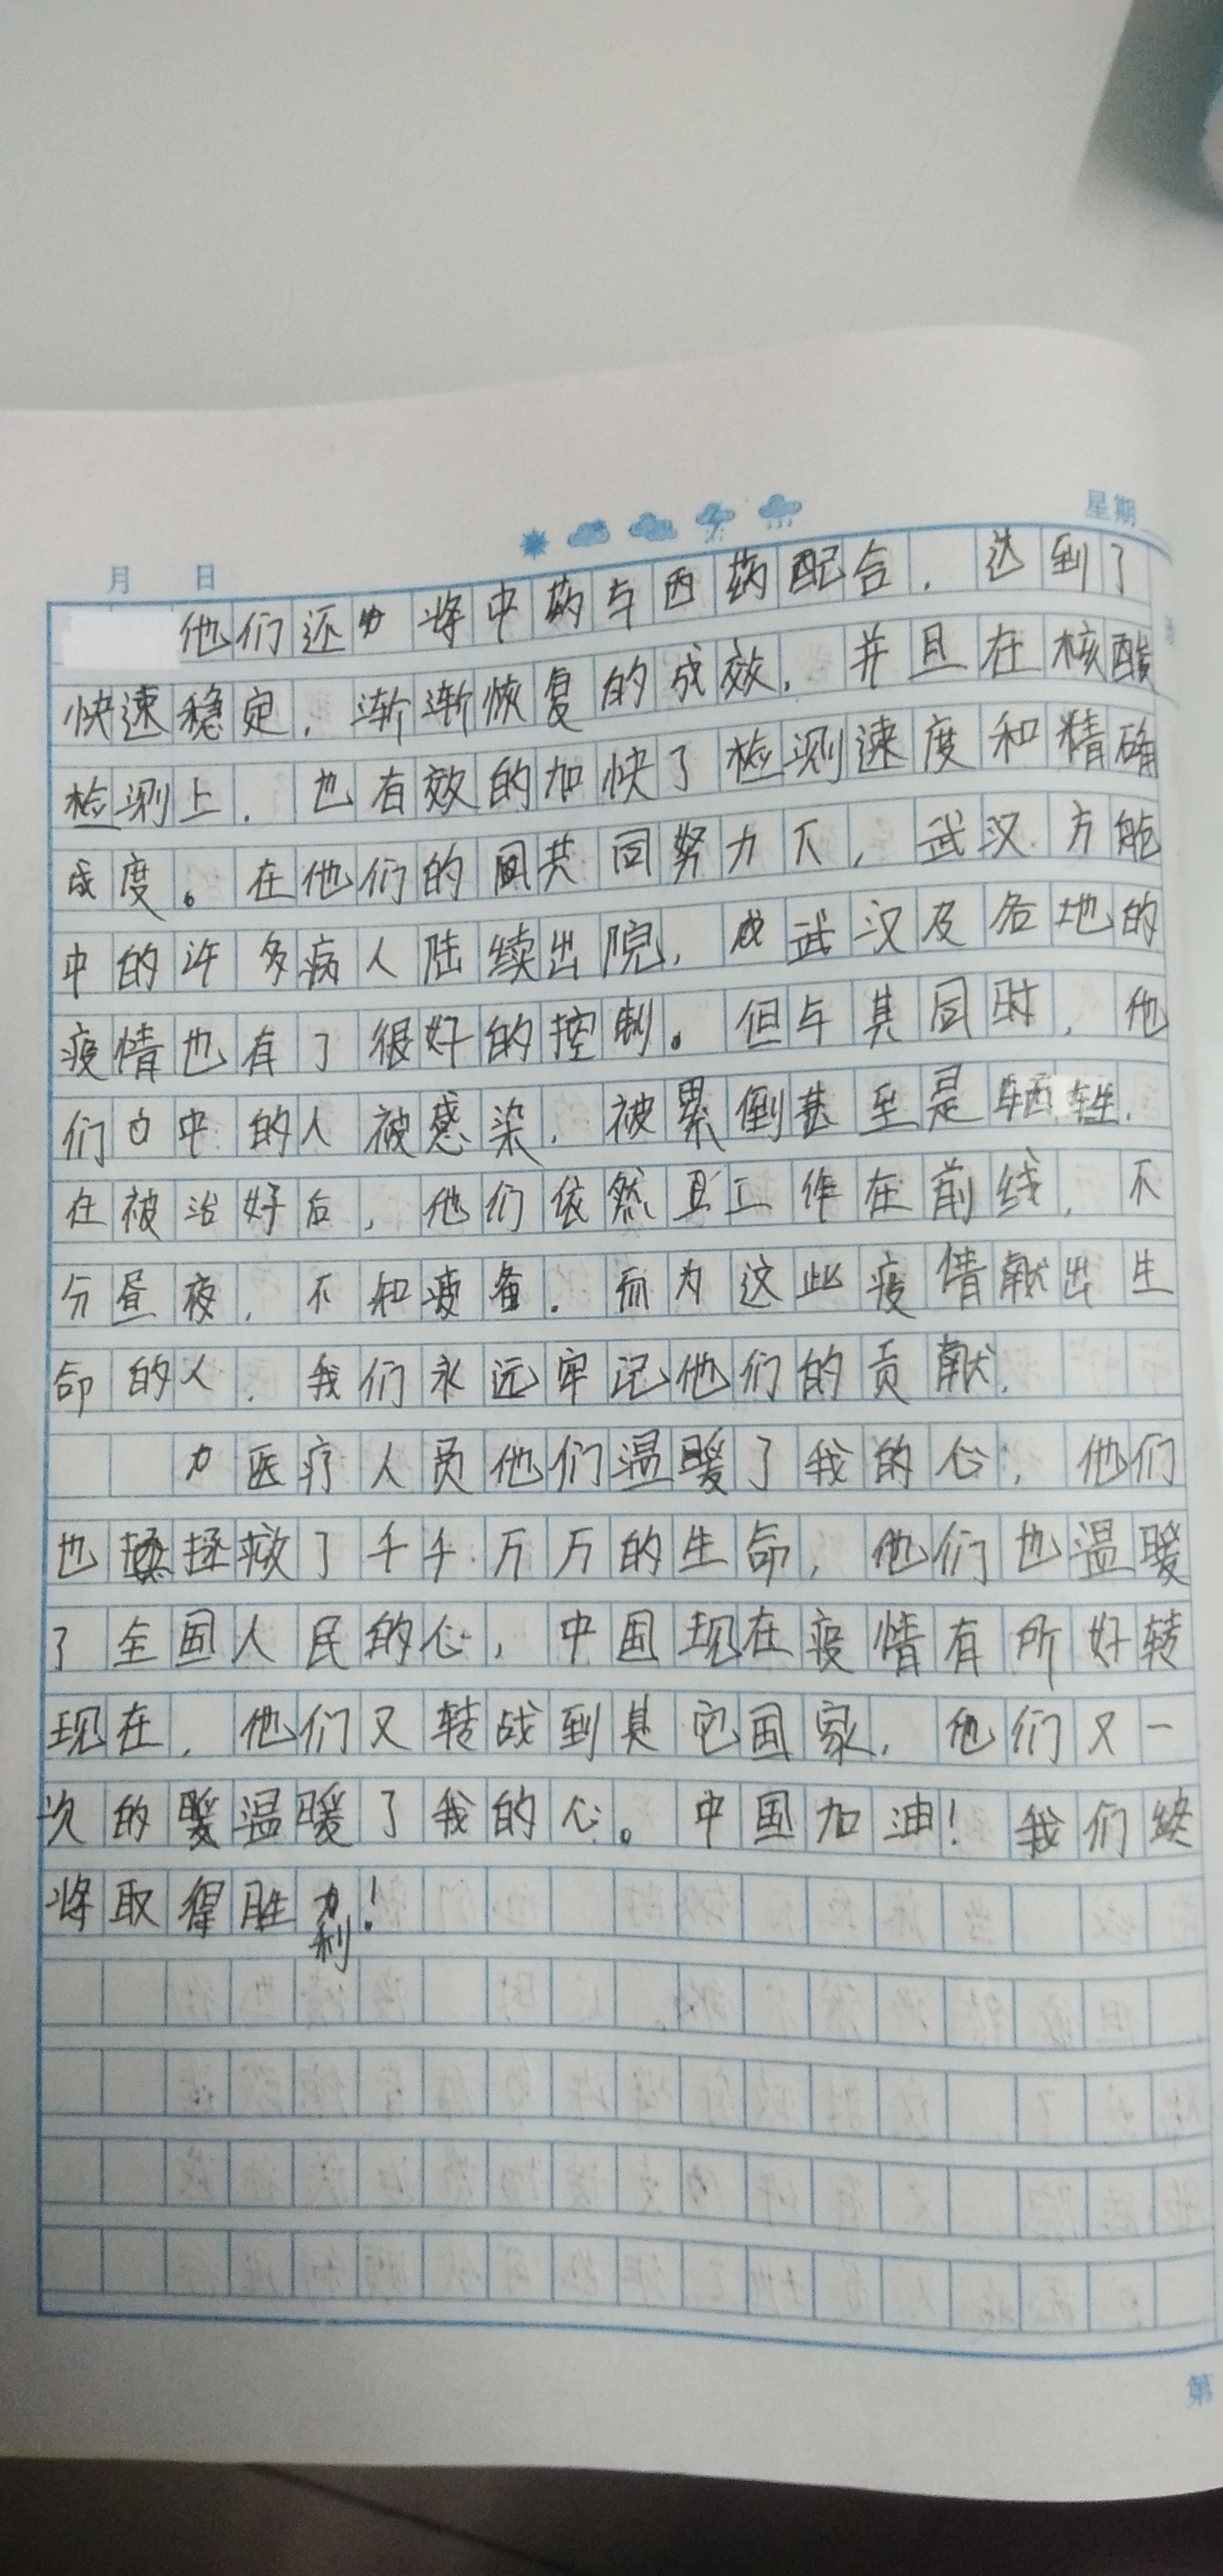 星期
月 日
他们还将中药与西药配合，达到了
快速稳定，渐渐恢复的成效，并且在核酸
检测上，也有效的加快了检测速度和精确
度。在他们的共同努力下，武汉方舱
中的许多病人陆续出院，武汉及各地的
疫情也有了很好的控制。但与其同时，他
们中的人被感染，被累倒甚至是牺牲，
在被治好后，他们依然工作在前线，不
分昼夜，不知疲备，而为这此疫情献出生
命的人，我们永远牢记他们的贡献，
医疗人员他们温暖了我的心，他们
也拯救了千千万万的生命，他们也温暖
了全国人民的心，中国现在疫情有所好转
现在，他们又转战到其它国家，他们又一
次的温暖了我的心。中国加油！我们终
将取得胜利！
第